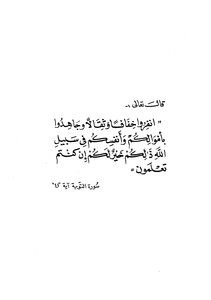 قال تعالى :
" انفِروا خِفَافًا وَثِقَالًا وجَاهِدُوا
بِأَمْوَالِكُمْ وَأَنفُسِكُمْ فِي سَبِيلِ
اللهِ ذَالِكُمْ خَيْرٌ لَكُمْ إِن كُنتُم
تَعْلَمُونَ "
سُورَة التوبة آية